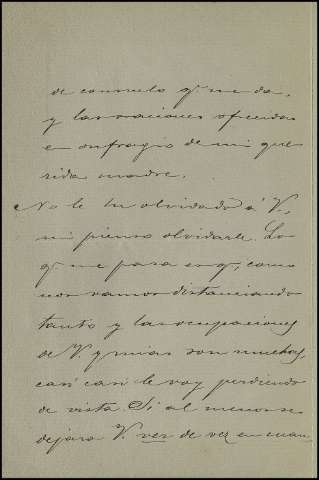 de consuelo q. me da,
y las oraciones ofrecidas
en sufragio de mi que
rida madre.
No le he olvidado á V.,
ni pienso olvidarle. Lo
q. me pasa es q, como
nos vamos distanciando
tanto y las ocupaciones
de V. y mias son muchas,
casi casi le voy perdiendo
de vista. Si al menos se
dejara V. ver de vez en cuan